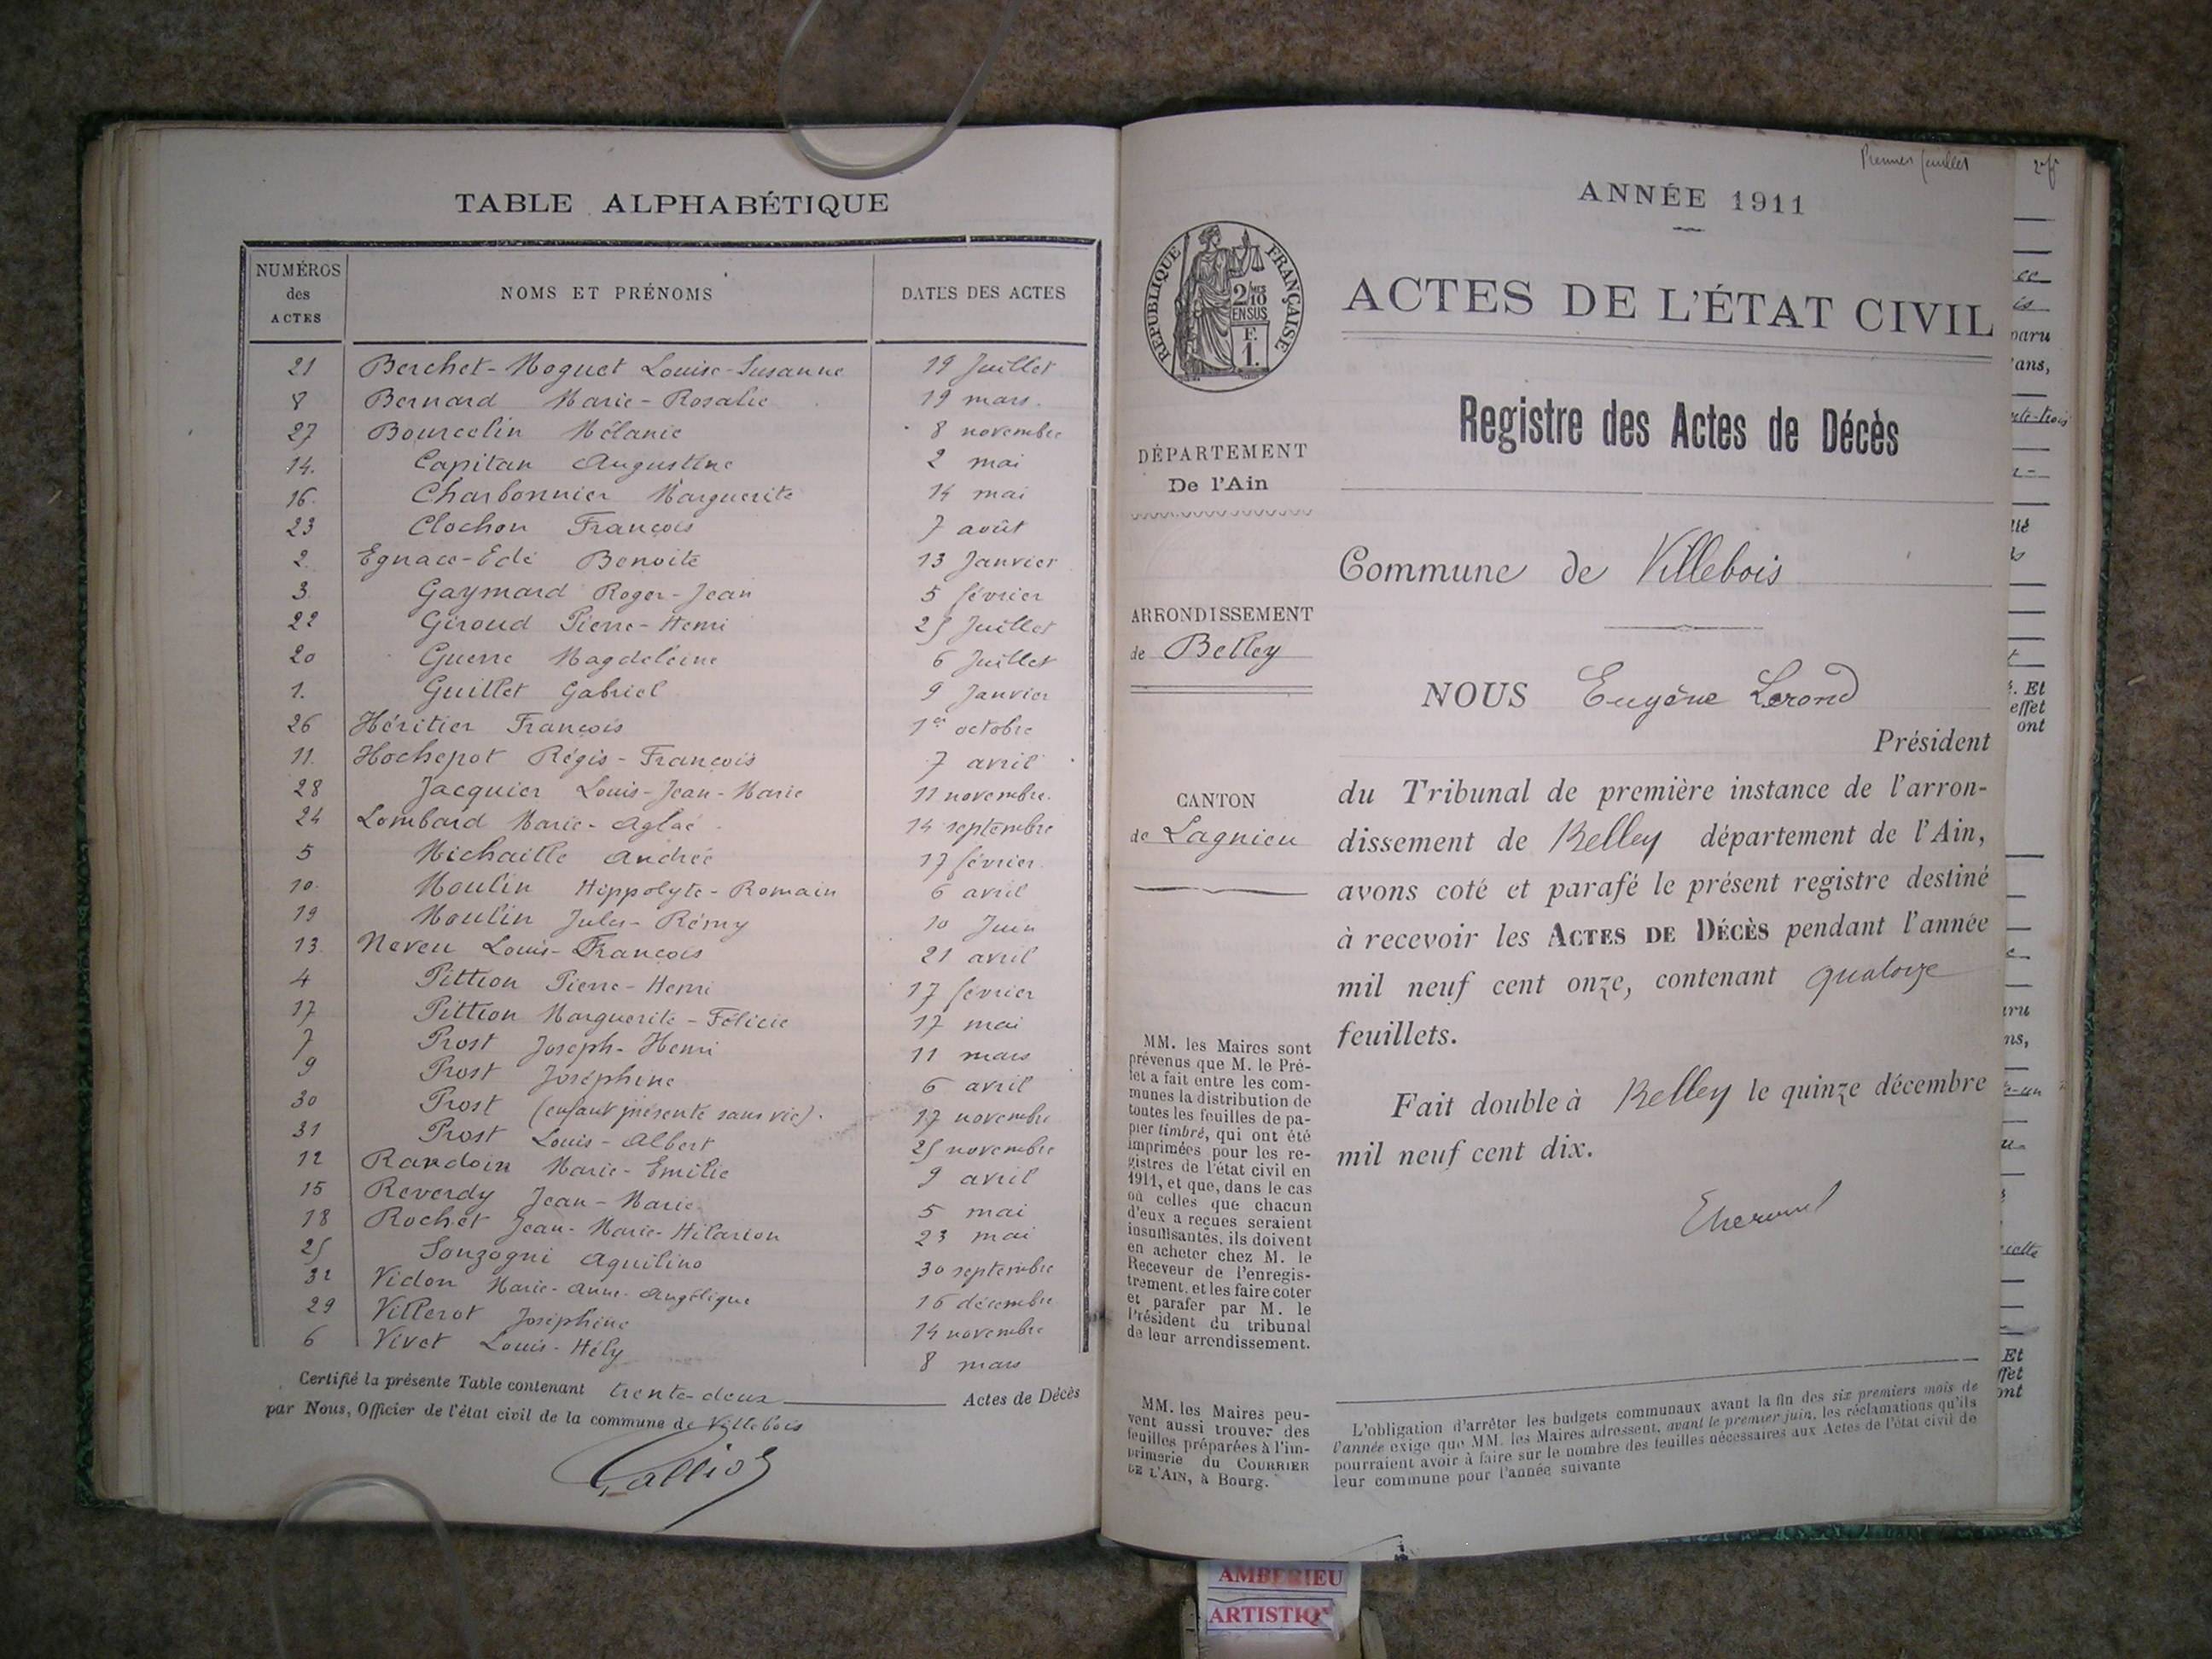 TABLE ALPHABÉTIQUE
NUMÉROS des ACTES NOMS ET PRÉNOMS DATES DES ACTES
21 Berchet-Moguet Louise-Susanne 19 Juillet
8 Bernard Marie-Rosalie 19 mars
27 Bourcelin Mélanie 8 novembre
14. Capitan Augustine 2 mai
16. Charbonnier Marguerite 14 mai
23 Clochon François 7 août
2. Egnace-Edé Benoite 13 Janvier
3. Gaymard Roger-Jean 5 février
22 Giroud Pierre-Henri 25 Juillet
20 Guerre Magdeleine 6 Juillet
1. Guillet Gabriel 9 Janvier
26 Héritier François 1er octobre
11. Hochepot Régis-François 7 avril
28 Jacquier Louis-Jean-Marie 11 novembre.
24 Lombard Marie-Aglaé 14 septembre
5 Michaille Andrée 17 février
10. Moulin Hippolyte-Romain 6 avril
19 Moulin Jules-Rémy 10 Juin
13. Neveu Louis-François 21 avril
4 Pittion Pierre-Henri 17 février
17 Pittion Marguerite-Félicie 17 mai
7 Prost Joseph-Henri 11 mars
9 Prost Joséphine 6 avril
30 Prost (enfant présenté sans vie). 17 novembre
31 Prost Louis-Albert 25 novembre
12 Ravdoin Marie-Emilie 9 avril
15 Reverdy Jean-Marie 5 mai
18 Rochet Jean-Marie-Hilarion 23 mai
25 Sonzogni Aquilino 30 septembre
32 Vidon Marie-Anne-Angélique 16 décembre
29 Villerot Joséphine 14 novembre
6 Vivet Louis-Hély 8 mars
Certifié la présente Table contenant trente-deux Actes de Décès
par Nous, Officier de l'état civil de la commune de Villebois
Premier feuillet
ANNÉE 1911
RÉPUBLIQUE FRANÇAISE
2/10 MES
EN SUS
F.
1.
ACTES DE L'ÉTAT CIVIL
Registre des Actes de Décès
DÉPARTEMENT
De l'Ain
Commune de Villebois
ARRONDISSEMENT
de Belley
NOUS Eugène Lerond
Président
du Tribunal de première instance de l'arron-
dissement de Belley département de l'Ain,
avons coté et parafé le présent registre destiné
à recevoir les ACTES DE DÉCÈS pendant l'année
mil neuf cent onze, contenant quatorze
feuillets.
Fait double à Belley le quinze décembre
mil neuf cent dix.
CANTON
de Lagnieu
MM. les Maires sont
prévenus que M. le Pré-
fet a fait entre les com-
munes la distribution de
toutes les feuilles de pa-
pier timbré, qui ont été
imprimées pour les re-
gistres de l'état civil en
1911, et que, dans le cas
où celles que chacun
d'eux a reçues seraient
insuffisantes, ils doivent
en acheter chez M. le
Receveur de l'enregis-
trement, et les faire coter
et parafer par M. le
Président du tribunal
de leur arrondissement.
MM. les Maires peu-
vent aussi trouver des
feuilles préparées à l'im-
primerie du COURRIER
DE L'AIN, à Bourg.
L'obligation d'arrêter les budgets communaux avant la fin des six premiers mois de
l'année exige que MM. les Maires adressent, avant le premier juin, les réclamations qu'ils
pourraient avoir à faire sur le nombre des feuilles nécessaires aux Actes de l'état civil de
leur commune pour l'année suivante
AMBERIEU
ARTISTIQ